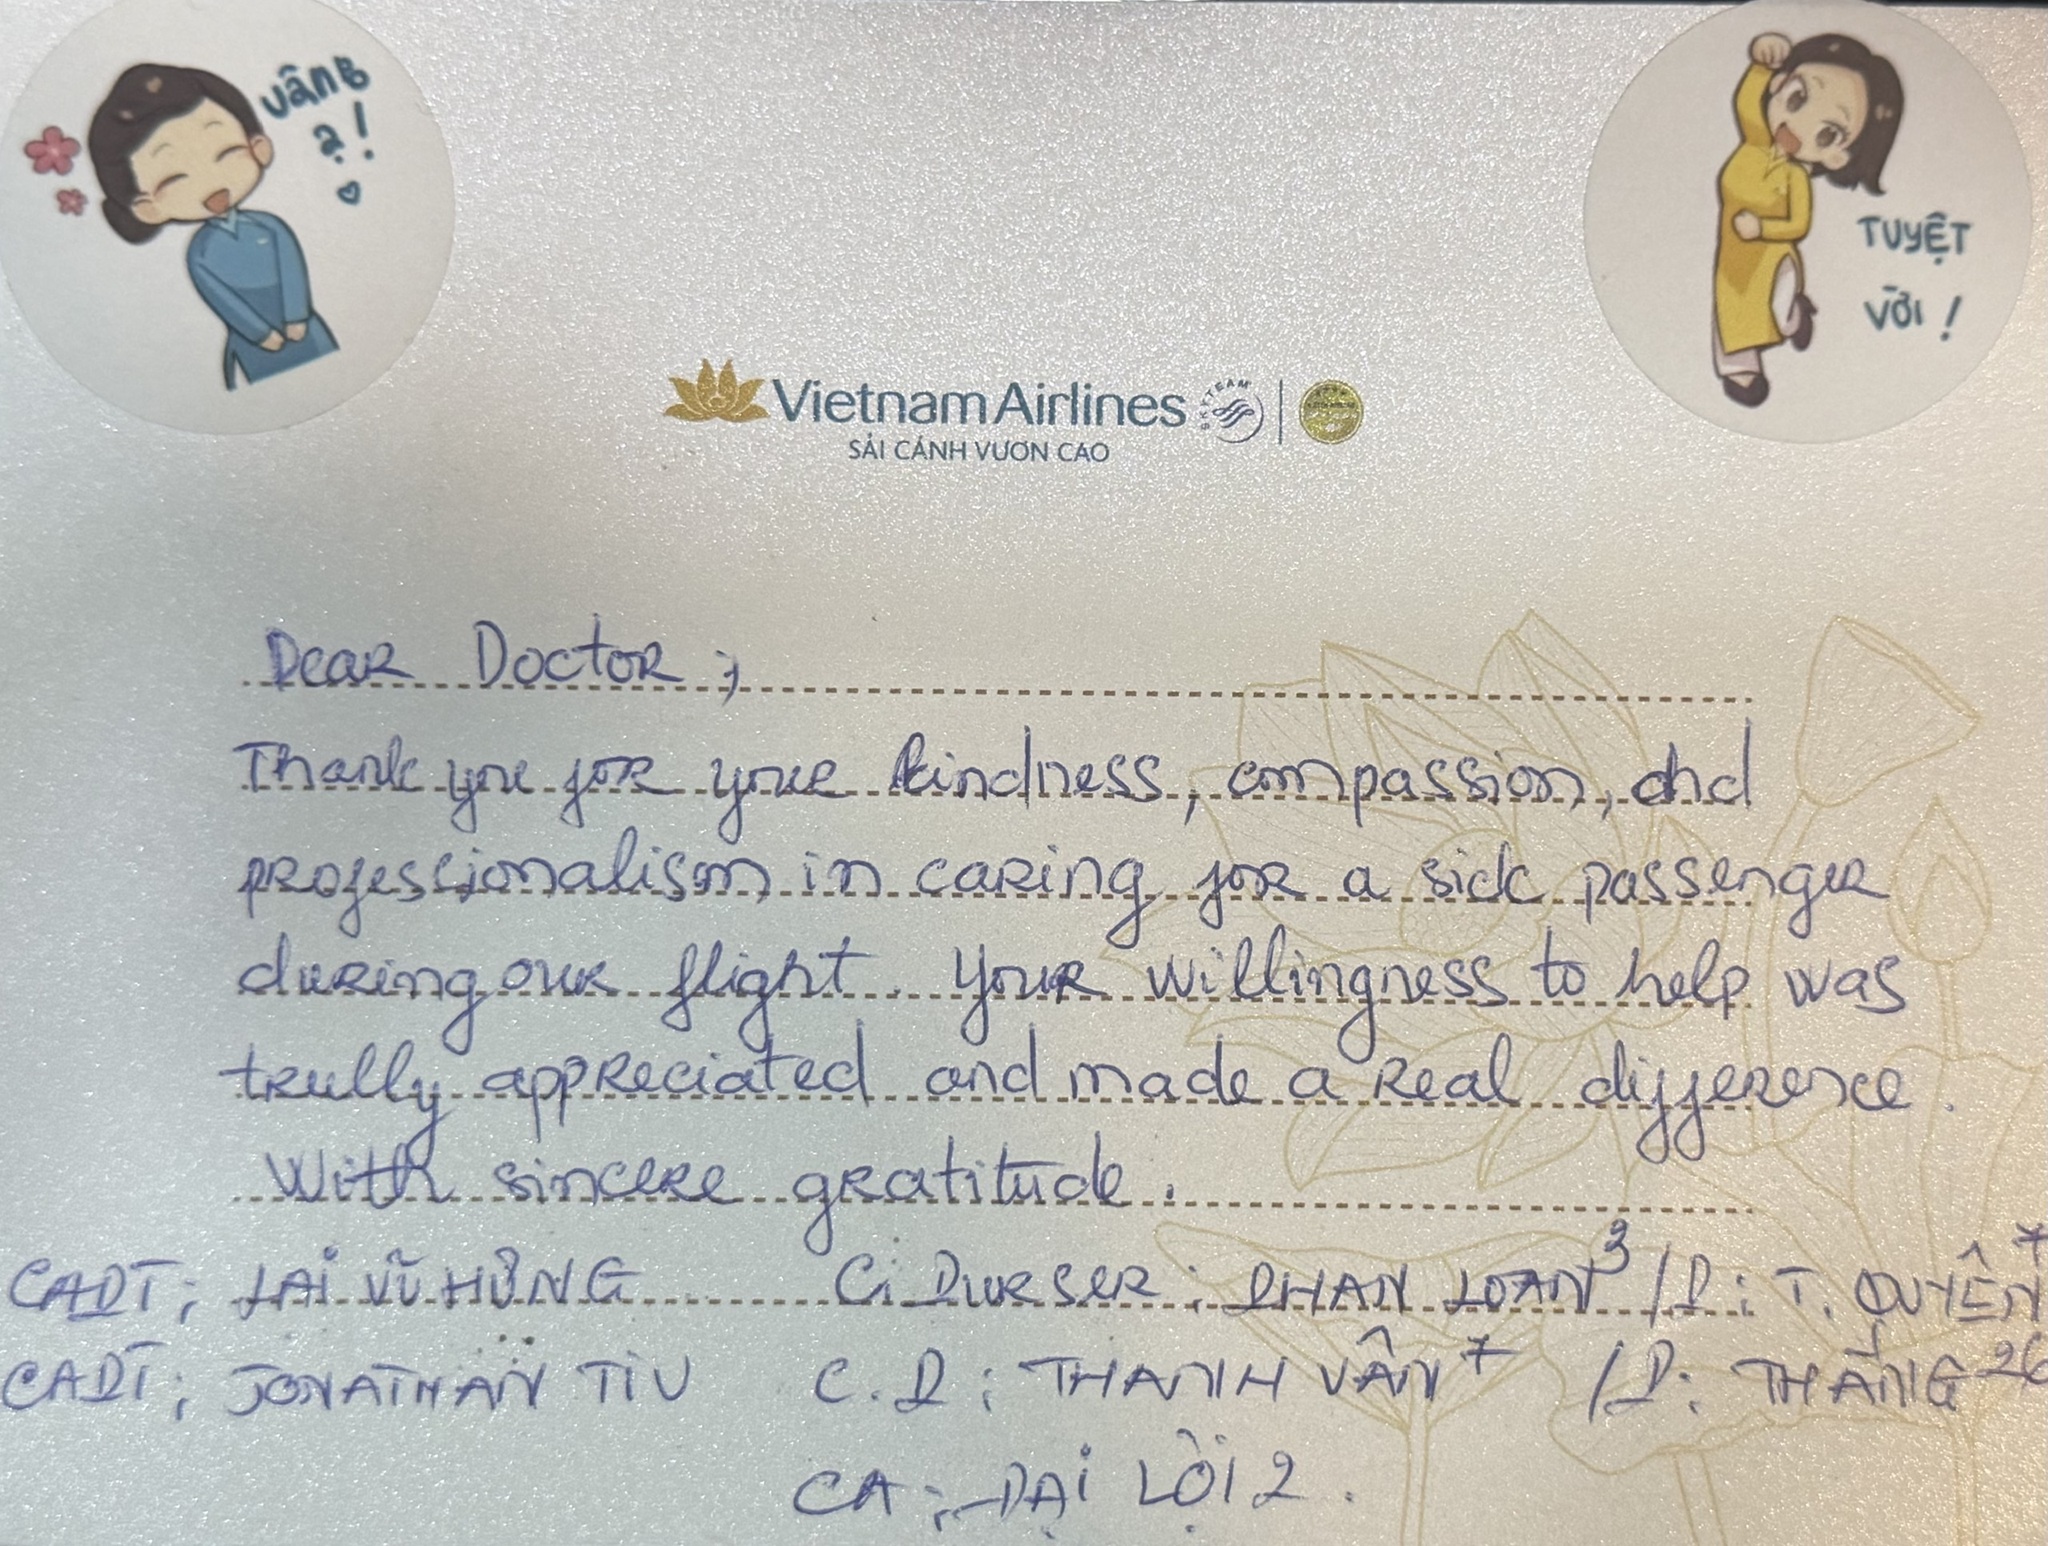 vâng
ạ!
TUYỆT
VỜI!
Vietnam Airlines
SKYTEAM
SẢI CÁNH VƯƠN CAO
Dear Doctor;
Thank you for your kindness, compassion, and
professionalism in caring for a sick passenger
during our flight. Your willingness to help was
trully appreciated and made a real difference.
With sincere gratitude.
CAPT: LẠI VŨ HÙNG C. Purser: PHAN LOAN3 / P: T. QUYÊN7
CAPT: JONATHAN TIU C.P: THANH VÂN7 / P: THẮNG26
CA: ĐẠI LỢI 2.